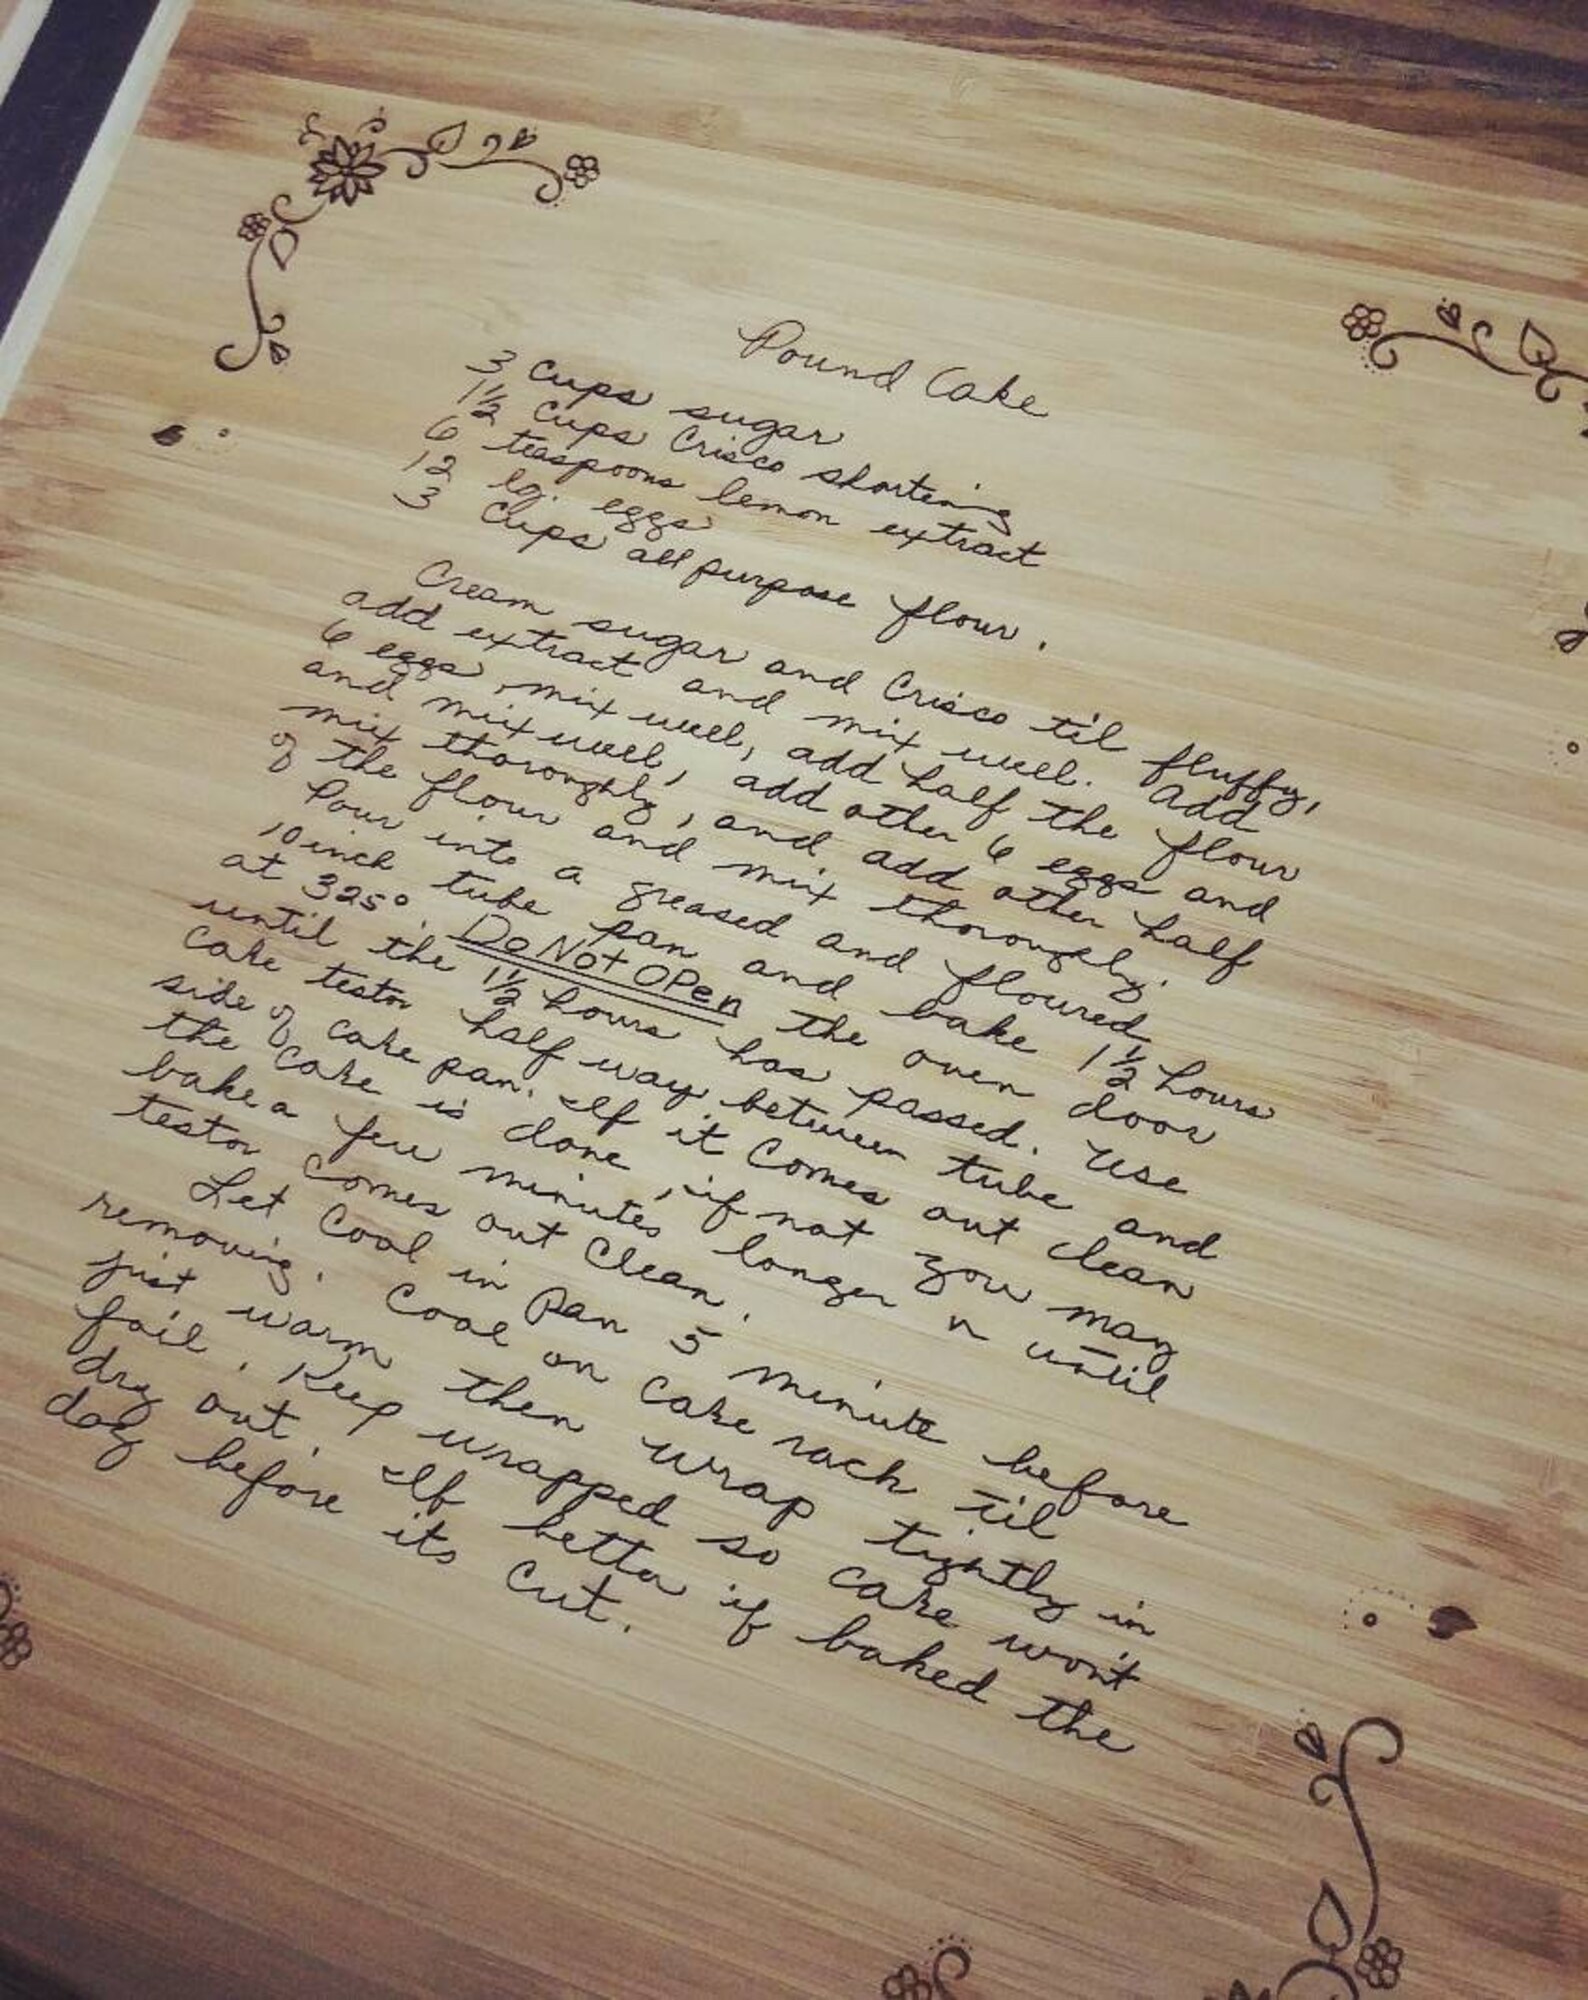 Pound Cake
3 Cups sugar
1½ Cups Crisco shortening
6 teaspoons lemon extract
12 lg. eggs
3 Cups all purpose flour.
Cream sugar and Crisco til fluffy,
add extract and mix well. Add
6 eggs, mix well, add half the flour
and mix well, add other 6 eggs and
mix thoroughly, and add other half
of the flour and mix thoroughly.
Pour into a greased and floured
10 inch tube pan and bake 1½ hours
at 325°. Do Not Open the oven door
until the 1½ hours has passed. Use
cake tester half way between tube and
side of cake pan. If it comes out clean
the cake is done, if not you may
bake a few minutes longer or until
tester comes out clean.
Let cool in pan 5 minute before
removing. Cool on cake rack til
just warm then wrap tightly in
foil. Keep wrapped so cake won't
dry out. If better if baked the
day before its cut.